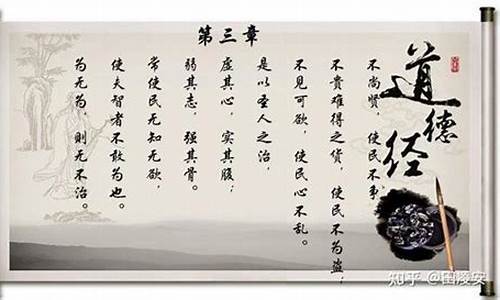 道德经
第三章
不尚贤，使民不争，
不贵难得之货，使民不为盗；
不见可欲，使民心不乱。
是以圣人之治，
虚其心，实其腹；
弱其志，强其骨。
常使民无知无欲，
使夫智者不敢为也。
为无为，则无不治。
知乎 @田凌安